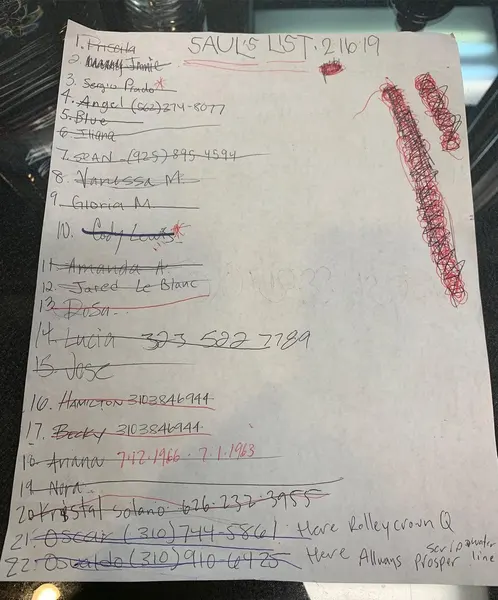 SAUL'S LIST · 2 16 19
1. Priscila
2. Jamie
3. Sergio Prado*
4. Angel (562) 374-8077
5. Blue
6. Iliana
7. SEAN (925) 895-4594
8. Vanessa M.
9. Gloria M.
10. Cody Lewis*
11. Amanda A.
12. Jared Le Blanc
13. DoSa
14. Lucia 323 522 7789
15. Jose
16. HAMILTON 3103846944
17. Becky 3103846944
18. Ariana 7·12·1966 · 7·1·1963
19. Nora
20. Krystal Solano 626-232-3955
21. Oscar (310) 744-5861 Here Rolley crown Q
22. Osvaldo (310) 910-6425 Here Allways prosper line